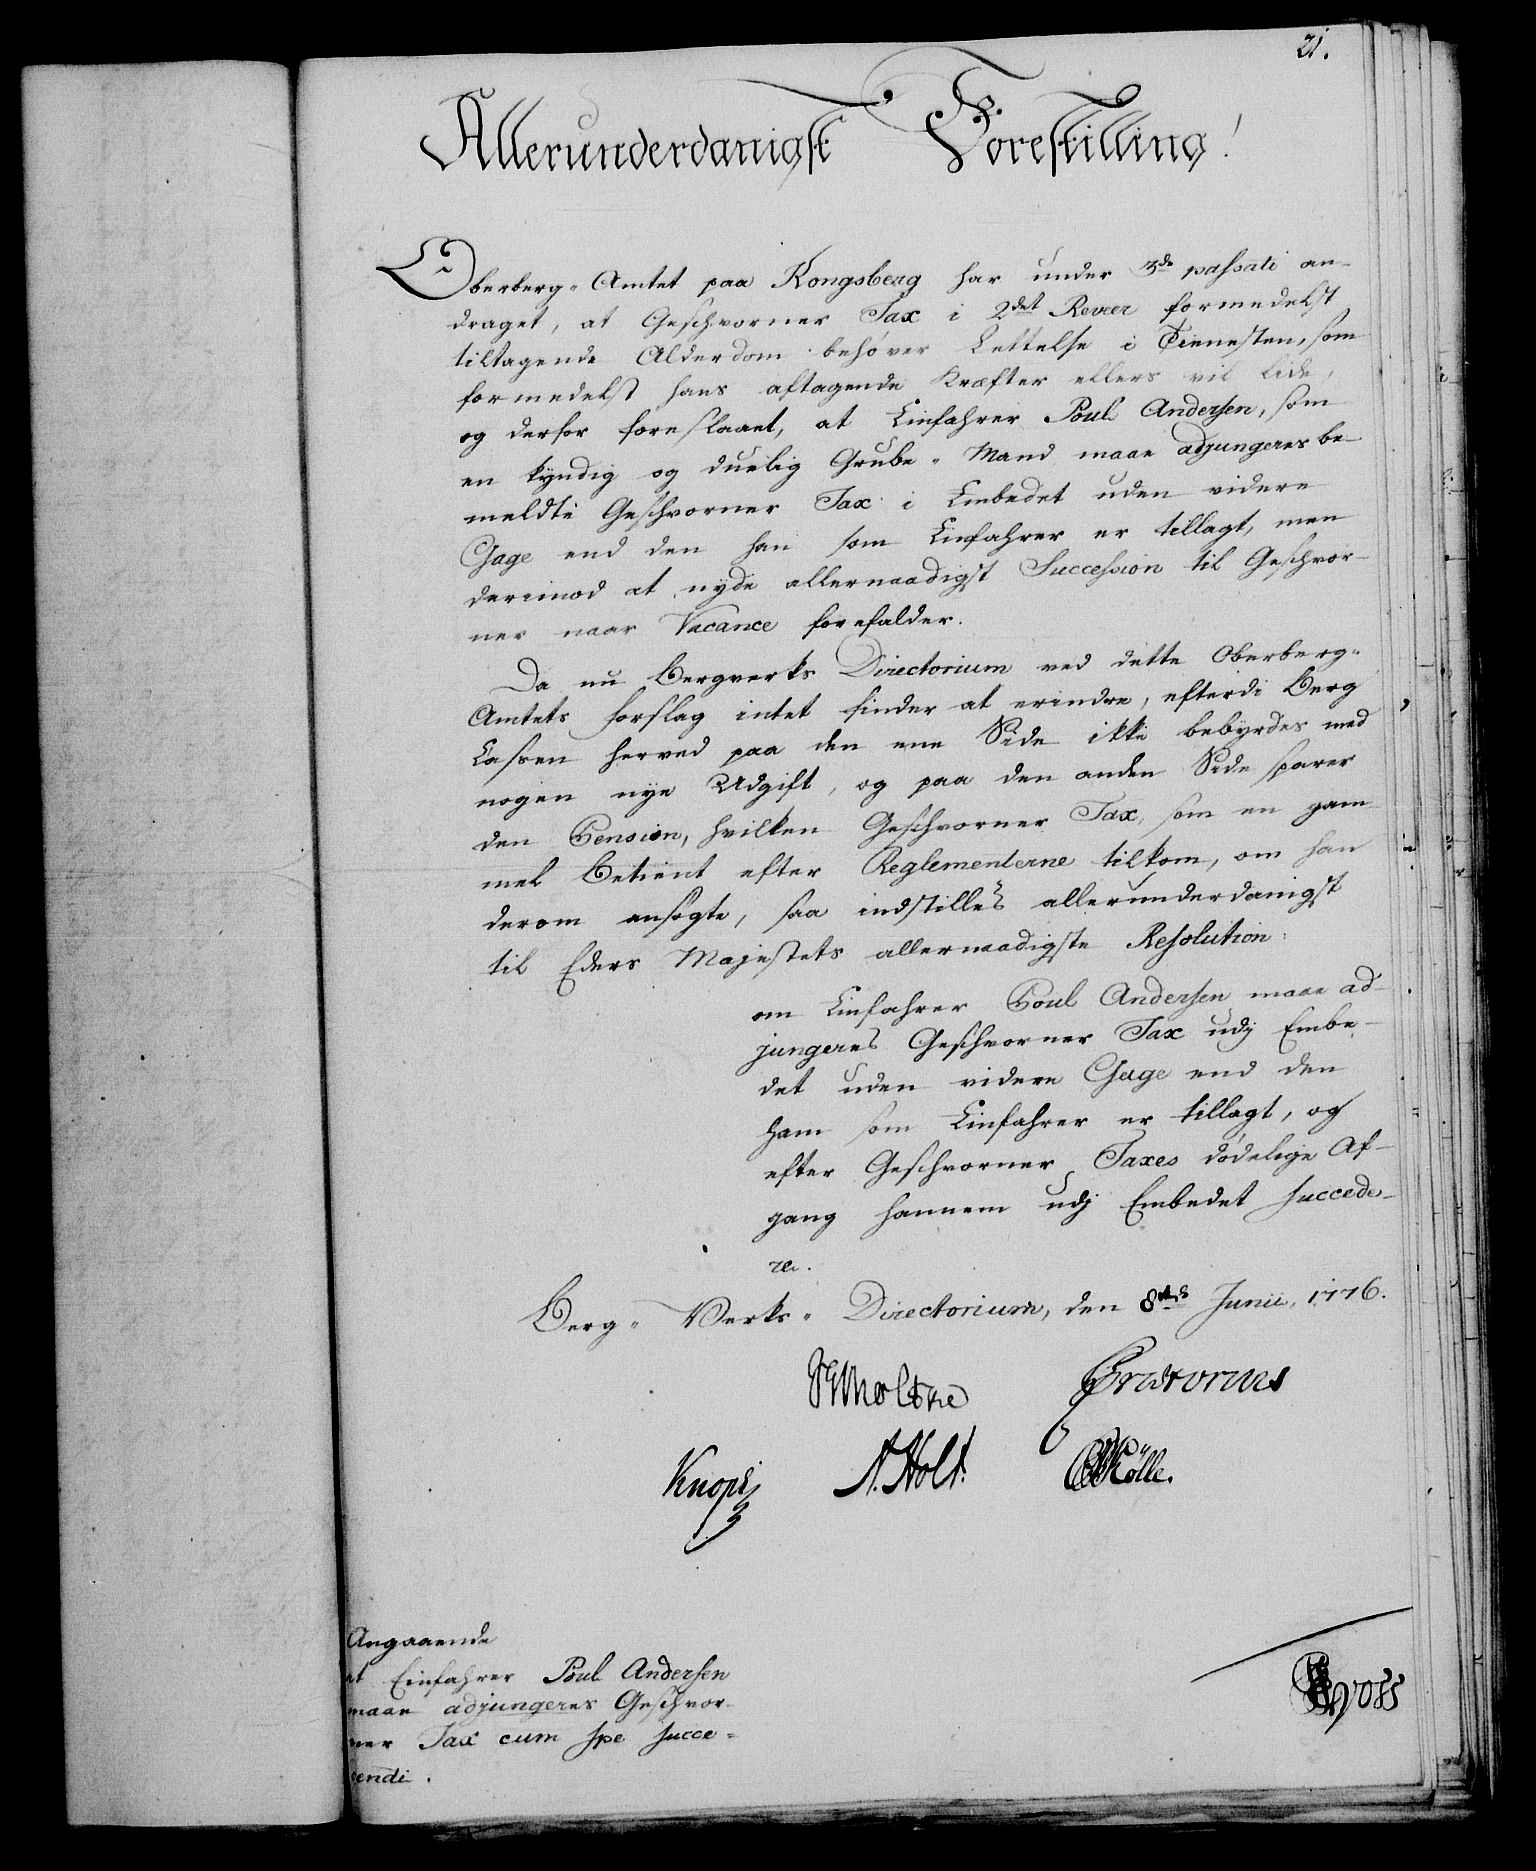 21.
Allerunderdanigst Forestilling!
Oberberg-Amtet paa Kongsberg har under 3de passati an-
draget, at Geschvorner Tax i 2det Reveer formedelst
tiltagende Alderdom behøver Lettelse i Tienesten, som
formedelst hans aftagende Kræfter ellers vil lide,
og derfor foreslaaet, at Einfahrer Poul Andersen, som
en kyndig og duelig Grube-Mand maae adjungeres be-
meldte Geschvorner Tax i Embedet uden videre
Gage end den han som Einfahrer er tillagt, men
derimod at nyde allernaadigst Succession til Geschvor-
ner naar Vacance forefalder.
Da nu Bergverks Directorium ved dette Oberberg-
Amtets Forslag intet finder at erindre, efterdi Berg
Cassen herved paa den ene Side ikke bebyrdes med
nogen nye Udgift, og paa den anden Side sparer
den Pension, hvilken Geschvorner Tax, som en gam
mel Betient efter Reglementerne tilkom, om han
derom ansøgte, saa indstilles allerunderdanigst
til Eders Majestets allernaadigste Resolution:
om Einfahrer Poul Andersen maae ad-
jungeres Geschvorner Tax udj Embe-
det uden videre Gage end den
ham som Einfahrer er tillagt, og
efter Geschvorner Taxes dødelige Af-
gang hannem udj Embedet succede-
re.
Berg-Verks-Directorium, den 8de Junii, 1776.
Moltke
Knopf A. Holt. Kölle.
Angaaende
at Einfahrer Poul Andersen
maae adjungeres Geschvor-
ner Tax cum spe succe-
dendi.